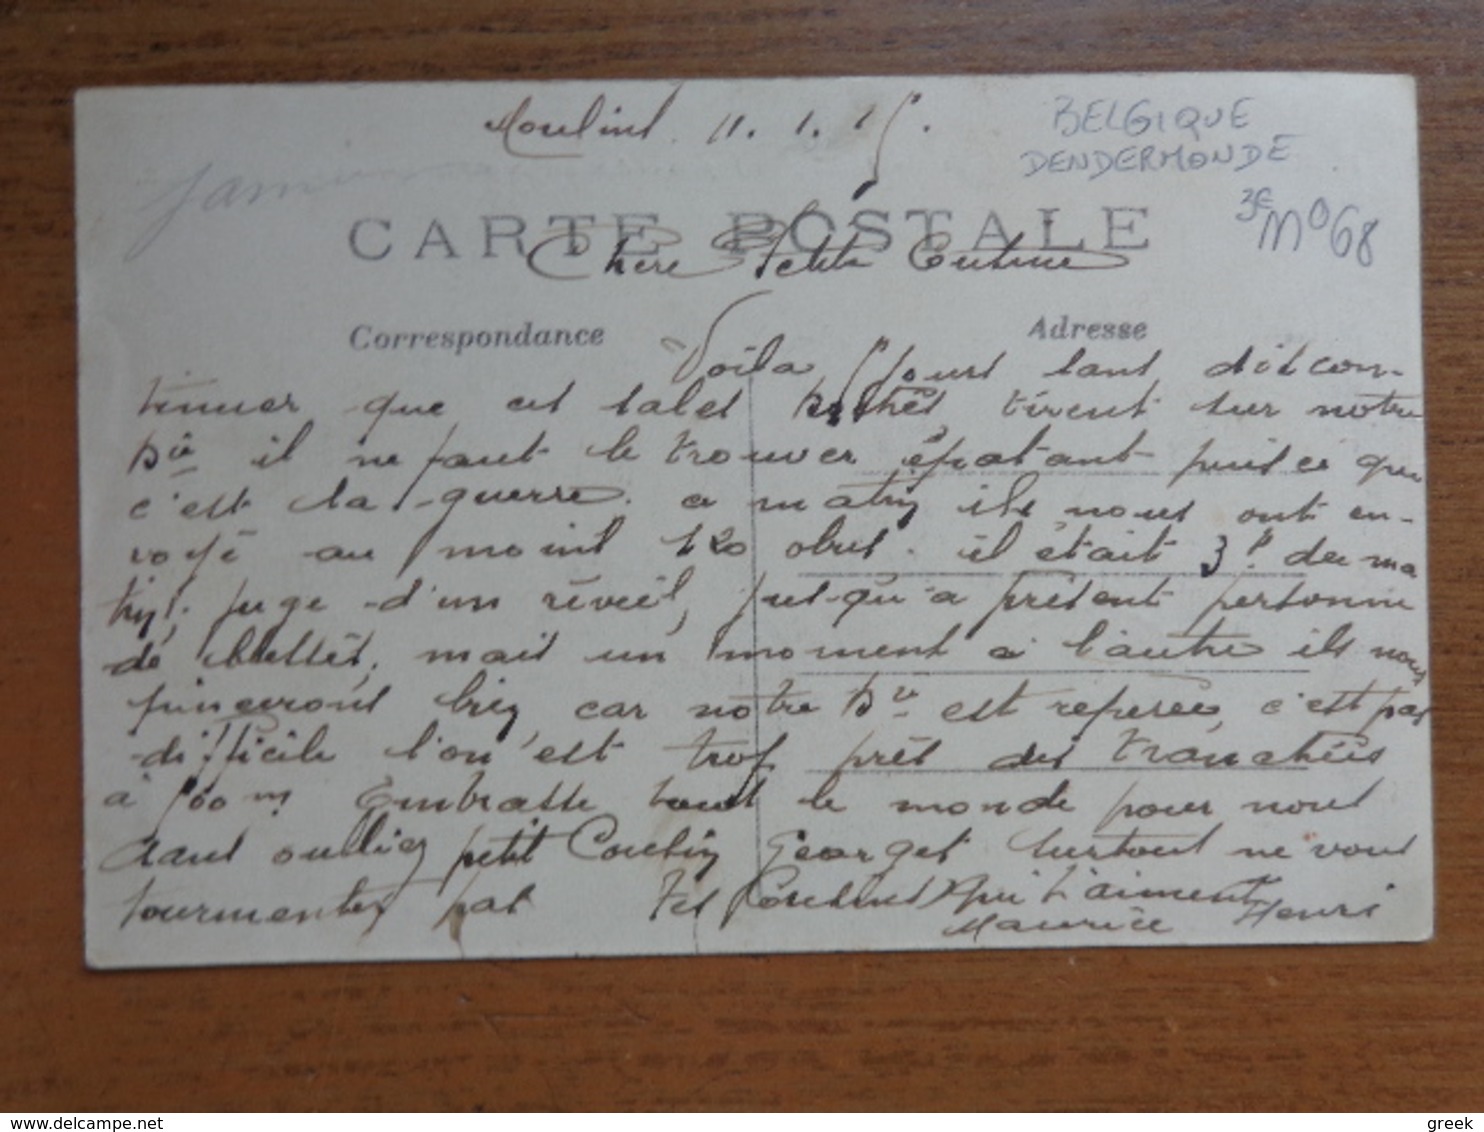 Moulins. 11. 1. 15.
BELGIQUE
DENDERMONDE
3€
Mo68
CARTE POSTALE
Chère Petite
Correspondance
Adresse
Voila jours sans discon-
tinuer que ces sales Boches tirent sur notre
Bie il ne faut le trouver épatant puisce que
c'est la guerre. a matin ils nous ont en-
voyé au moins 120 obus. il était 3h du ma
tin, juge d'un réveil, jusqu'a présent personne
de blessés, mais un moment à l'autre ils nous
pinceront bien car notre Bie est reperée, c'est pas
difficile l'on est trop près des tranchées
à 500m Embrasse tout le monde pour nous
sans oublier petit Cousin Georget surtout ne vous
tourmentez pas Tes Cousins qui t'aiment
Maurice Henri
delcampe.net
greek